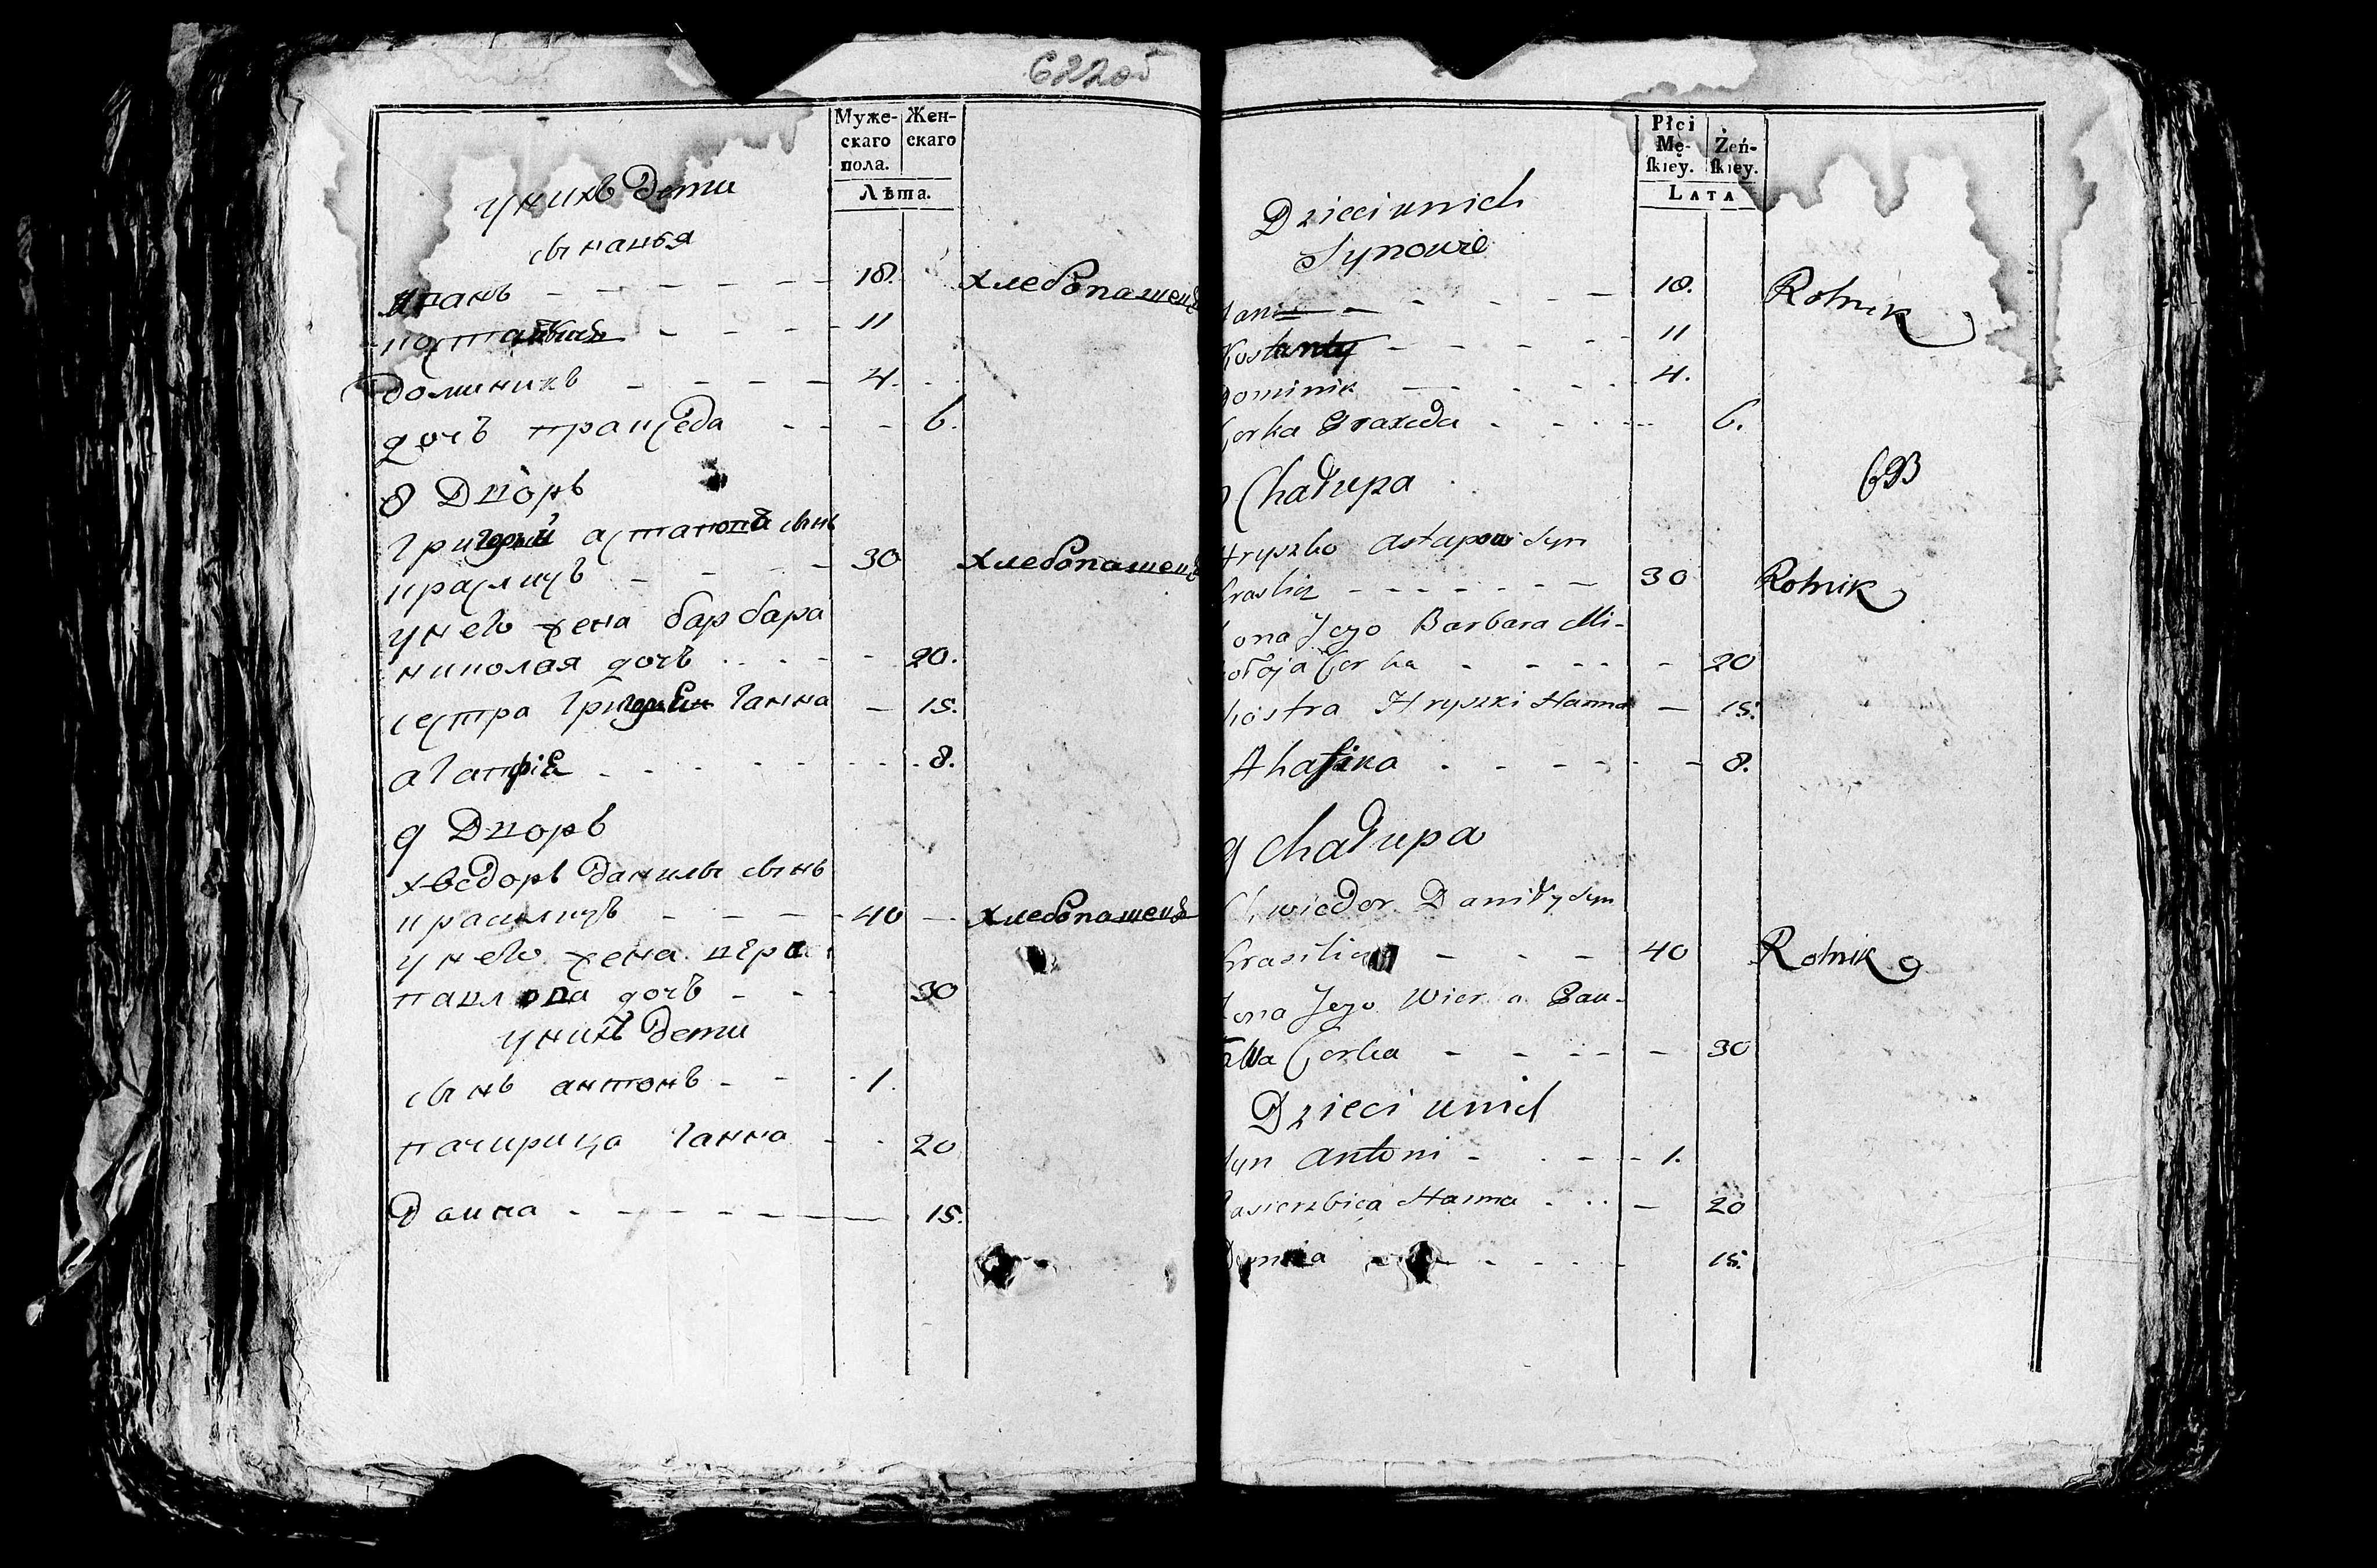 622об
Муже-
скаго
пола.
Жен-
скаго
Лѣта.
у нихъ дети
сынавья
иванъ - - - - - - 18. хлебопашецъ
- - - - 11
доминикъ - - - - 4.
дочъ пракседа - - - 6.
8 Дворъ
григорый астапова сынъ
краслицъ - - - - 30 хлебопашецъ
у него жена барбара
николая дочъ - - - - 20.
сестра ганна - 15.
агапфіа - - - - - - 8.
9 Дворъ
хведоръ данилы сынъ
красилицъ - - - - 40 - хлебопашецъ
у него жена вера
павлова дочъ - - - 30
у нихъ дети
сынъ антонъ - - - 1.
пачирица ганна - - 20
Данна - - - - - - 15.
Płci
Mę-
ſkiey.
Żeń-
ſkiey.
LATA
Dzieci u nich
Synowie
- - - - - 18. Rolnik
Kostanty - - - - - 11
Dominik - - - - 4.
Corka Praxeda - - - - 6.
Chałupa
6B
Hryszko Astapow Syn
Kraslicz - - - - - - 30 Rolnik
Żona Jego Barbara Mi-
kołaja Corka - - - - - 20
Siostra Hryszki Hanna - 15.
Ahafika - - - - - - 8.
9 Chałupa
Chwiedor Daniły Syn
- - - 40 Rolnik
Żona Jego Wiera Paw-
Corka - - - - - 30
Dzieci u nich
Syn Antoni - - - - 1.
Pasierzbica Hanna - - - 20
- - - - - 15.